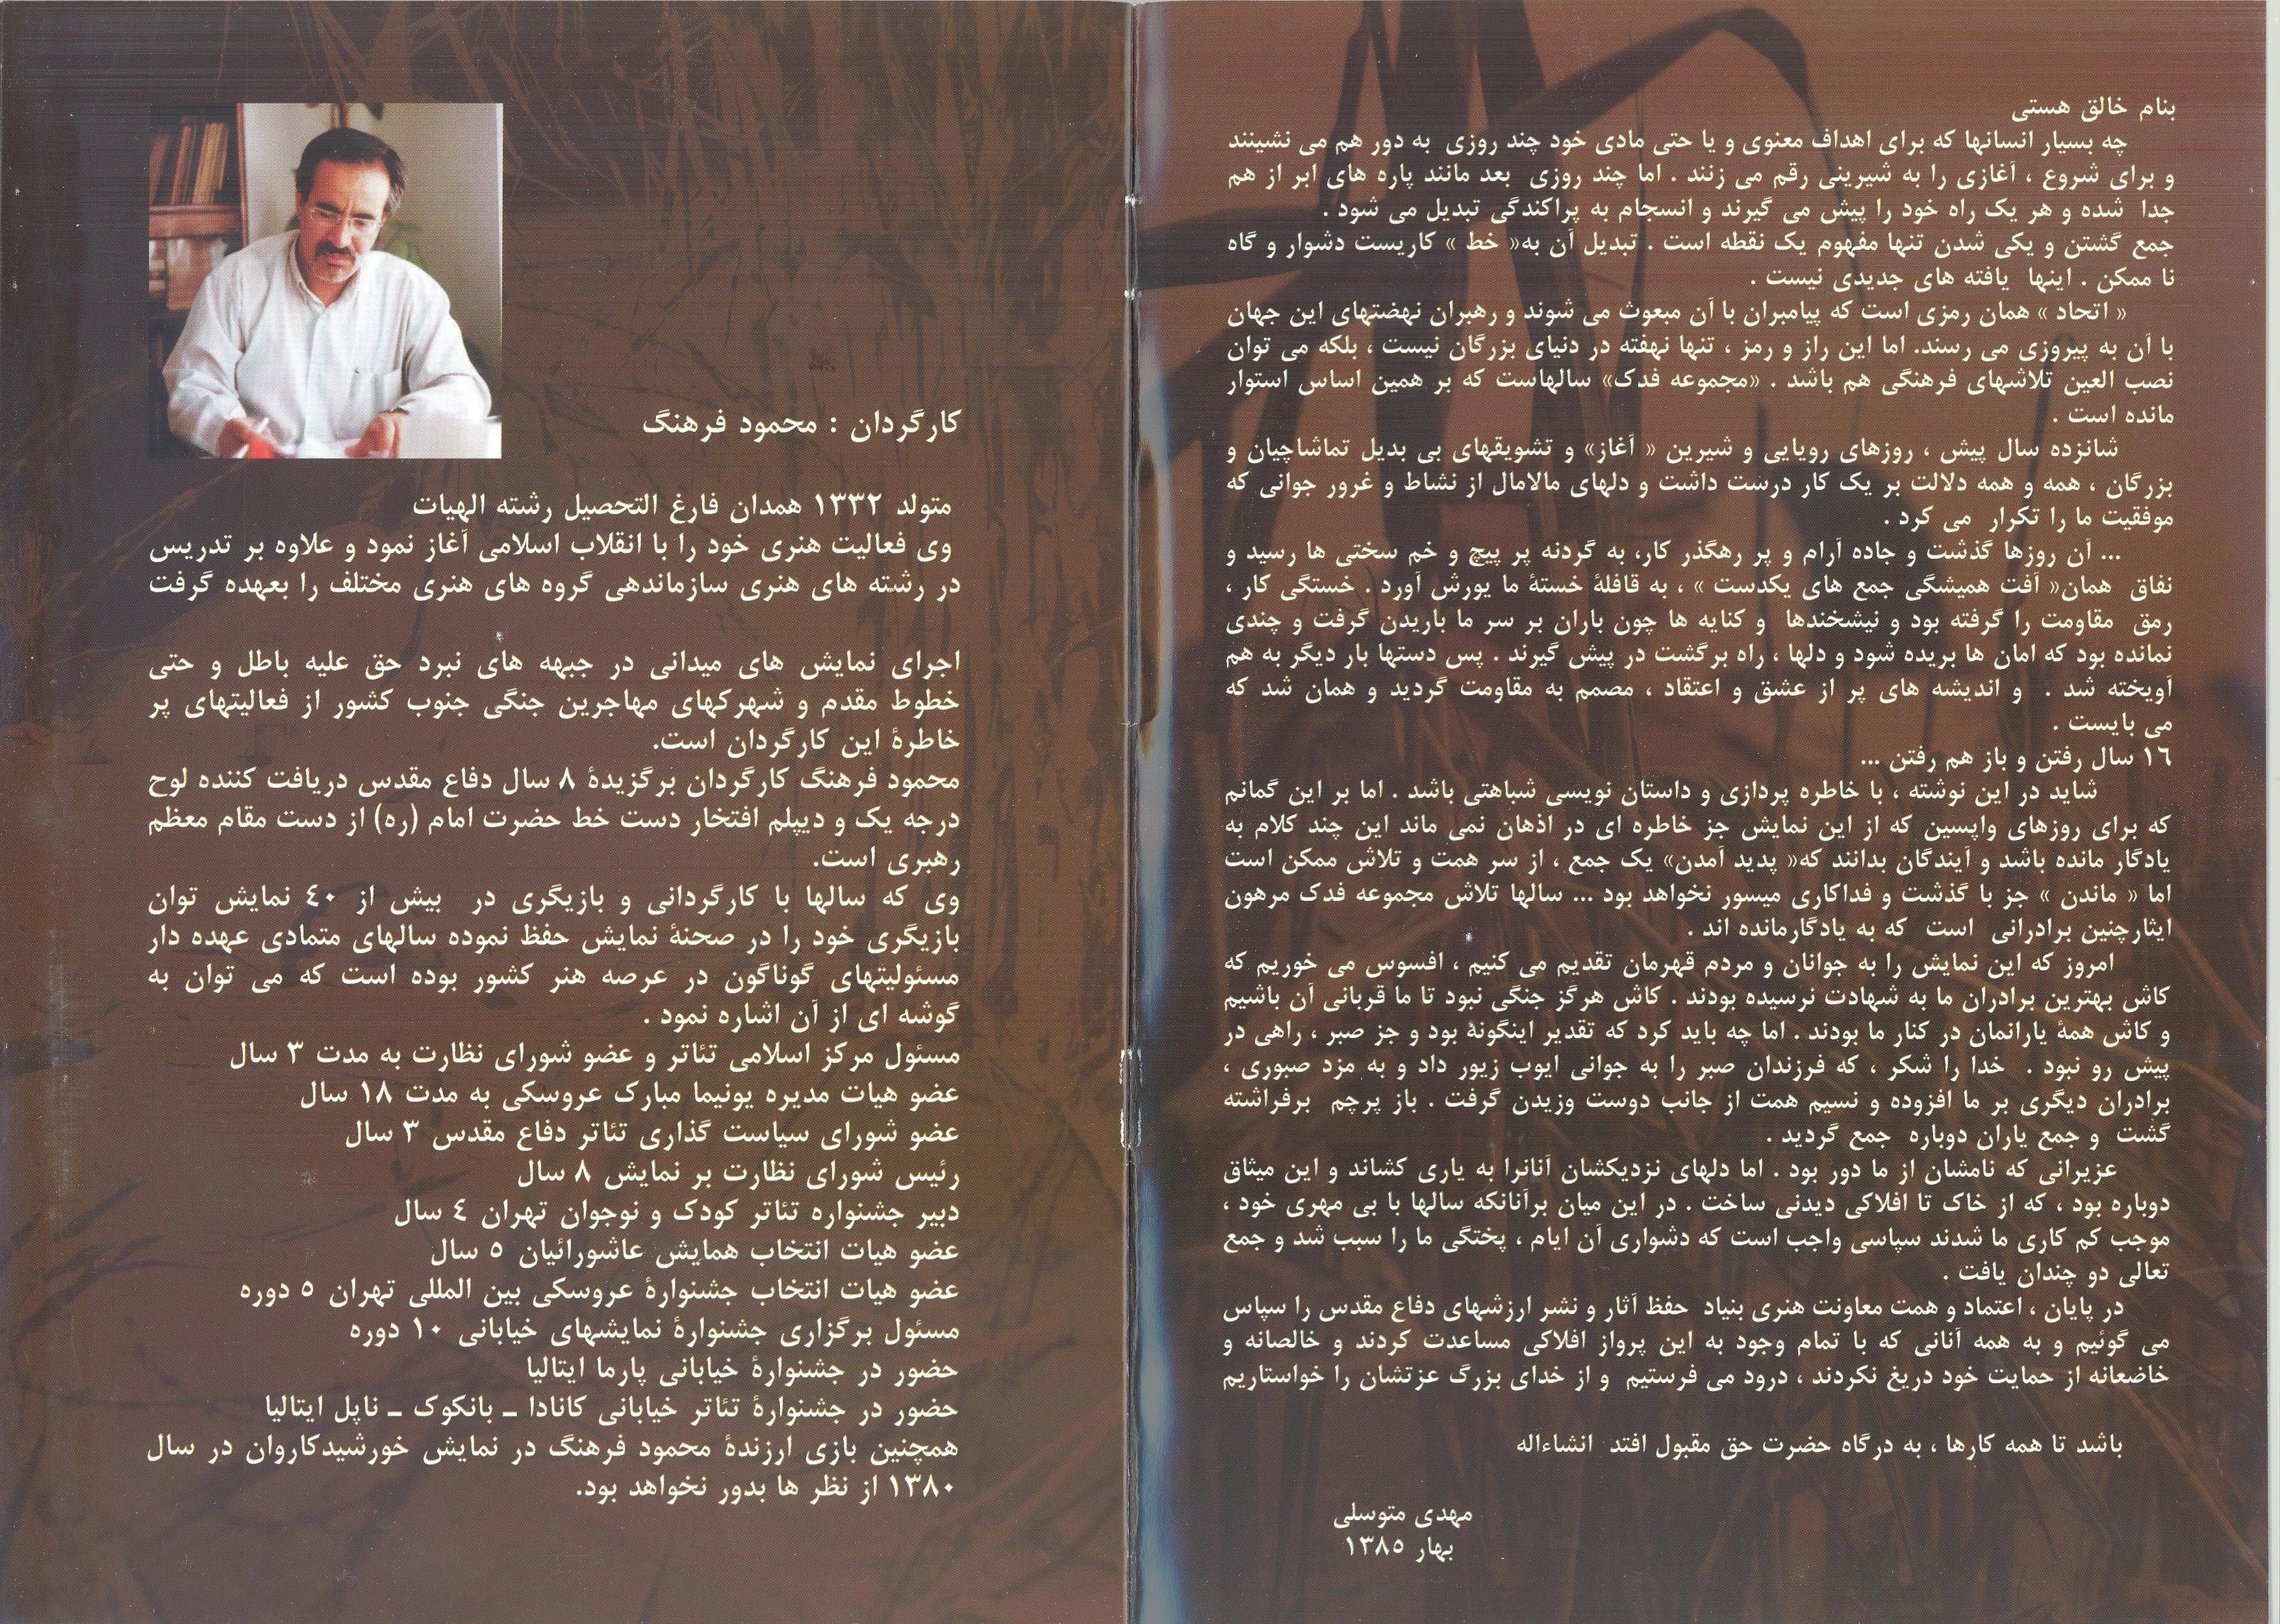 بنام خالق هستی
چه بسیار انسانها که برای اهداف معنوی و یا حتی مادی خود چند روزی به دور هم می نشینند
و برای شروع ، آغازی را به شیرینی رقم می زنند . اما چند روزی بعد مانند پاره های ابر از هم
جدا شده و هر یک راه خود را پیش می گیرند و انسجام به پراکندگی تبدیل می شود .
جمع گشتن و یکی شدن تنها مفهوم یک نقطه است . تبدیل آن به« خط » کاریست دشوار و گاه
نا ممکن . اینها یافته های جدیدی نیست .
« اتحاد » همان رمزی است که پیامبران با آن مبعوث می شوند و رهبران نهضتهای این جهان
با آن به پیروزی می رسند. اما این راز و رمز ، تنها نهفته در دنیای بزرگان نیست ، بلکه می توان
نصب العین تلاشهای فرهنگی هم باشد . «مجموعه فدک» سالهاست که بر همین اساس استوار
مانده است .
شانزده سال پیش ، روزهای رویایی و شیرین « آغاز» و تشویقهای بی بدیل تماشاچیان و
بزرگان ، همه و همه دلالت بر یک کار درست داشت و دلهای مالامال از نشاط و غرور جوانی که
موفقیت ما را تکرار می کرد .
... آن روزها گذشت و جاده آرام و پر رهگذر کار، به گردنه پر پیچ و خم سختی ها رسید و
نفاق همان« آفت همیشگی جمع های یکدست » ، به قافلۀ خستۀ ما یورش آورد . خستگی کار ،
رمق مقاومت را گرفته بود و نیشخندها و کنایه ها چون باران بر سر ما باریدن گرفت و چندی
نمانده بود که امان ها بریده شود و دلها ، راه برگشت در پیش گیرند . پس دستها بار دیگر به هم
آویخته شد . و اندیشه های پر از عشق و اعتقاد ، مصمم به مقاومت گردید و همان شد که
می بایست .
۱۶ سال رفتن و باز هم رفتن ...
شاید در این نوشته ، با خاطره پردازی و داستان نویسی شباهتی باشد . اما بر این گمانم
که برای روزهای واپسین که از این نمایش جز خاطره ای در اذهان نمی ماند این چند کلام به
یادگار مانده باشد و آیندگان بدانند که« پدید آمدن» یک جمع ، از سر همت و تلاش ممکن است
اما « ماندن » جز با گذشت و فداکاری میسور نخواهد بود ... سالها تلاش مجموعه فدک مرهون
ایثارچنین برادرانی است که به یادگارمانده اند .
امروز که این نمایش را به جوانان و مردم قهرمان تقدیم می کنیم ، افسوس می خوریم که
کاش بهترین برادران ما به شهادت نرسیده بودند . کاش هرگز جنگی نبود تا ما قربانی آن باشیم
و کاش همۀ یارانمان در کنار ما بودند . اما چه باید کرد که تقدیر اینگونۀ بود و جز صبر ، راهی در
پیش رو نبود . خدا را شکر ، که فرزندان صبر را به جوانی ایوب زیور داد و به مزد صبوری ،
برادران دیگری بر ما افزوده و نسیم همت از جانب دوست وزیدن گرفت . باز پرچم برفراشته
گشت و جمع یاران دوباره جمع گردید .
عزیرانی که نامشان از ما دور بود . اما دلهای نزدیکشان آنانرا به یاری کشاند و این میثاق
دوباره بود ، که از خاک تا افلاکی دیدنی ساخت . در این میان برآنانکه سالها با بی مهری خود ،
موجب کم کاری ما شدند سپاسی واجب است که دشواری آن ایام ، پختگی ما را سبب شد و جمع
تعالی دو چندان یافت .
در پایان ، اعتماد و همت معاونت هنری بنیاد حفظ آثار و نشر ارزشهای دفاع مقدس را سپاس
می گوئیم و به همه آنانی که با تمام وجود به این پرواز افلاکی مساعدت کردند و خالصانه و
خاضعانه از حمایت خود دریغ نکردند ، درود می فرستیم و از خدای بزرگ عزتشان را خواستاریم
باشد تا همه کارها ، به درگاه حضرت حق مقبول افتد انشاءاله
مهدی متوسلی
بهار ۱۳۸۵
کارگردان : محمود فرهنگ
متولد ۱۳۳۲ همدان فارغ التحصیل رشته الهیات
وی فعالیت هنری خود را با انقلاب اسلامی آغاز نمود و علاوه بر تدریس
در رشته های هنری سازماندهی گروه های هنری مختلف را بعهده گرفت
اجرای نمایش های میدانی در جبهه های نبرد حق علیه باطل و حتی
خطوط مقدم و شهرکهای مهاجرین جنگی جنوب کشور از فعالیتهای پر
خاطرۀ این کارگردان است.
محمود فرهنگ کارگردان برگزیدۀ ۸ سال دفاع مقدس دریافت کننده لوح
درجه یک و دیپلم افتخار دست خط حضرت امام (ره) از دست مقام معظم
رهبری است.
وی که سالها با کارگردانی و بازیگری در بیش از ۴۰ نمایش توان
بازیگری خود را در صحنۀ نمایش حفظ نموده سالهای متمادی عهده دار
مسئولیتهای گوناگون در عرصه هنر کشور بوده است که می توان به
گوشه ای از آن اشاره نمود .
مسئول مرکز اسلامی تئاتر و عضو شورای نظارت به مدت ۳ سال
عضو هیات مدیره یونیما مبارک عروسکی به مدت ۱۸ سال
عضو شورای سیاست گذاری تئاتر دفاع مقدس ۳ سال
رئیس شورای نظارت بر نمایش ۸ سال
دبیر جشنواره تئاتر کودک و نوجوان تهران ۴ سال
عضو هیات انتخاب همایش عاشورائیان ۵ سال
عضو هیات انتخاب جشنوارۀ عروسکی بین المللی تهران ۵ دوره
مسئول برگزاری جشنوارۀ نمایشهای خیابانی ۱۰ دوره
حضور در جشنوارۀ خیابانی پارما ایتالیا
حضور در جشنوارۀ تئاتر خیابانی کانادا ـ بانکوک ـ ناپل ایتالیا
همچنین بازی ارزندۀ محمود فرهنگ در نمایش خورشیدکاروان در سال
۱۳۸۰ از نظر ها بدور نخواهد بود.